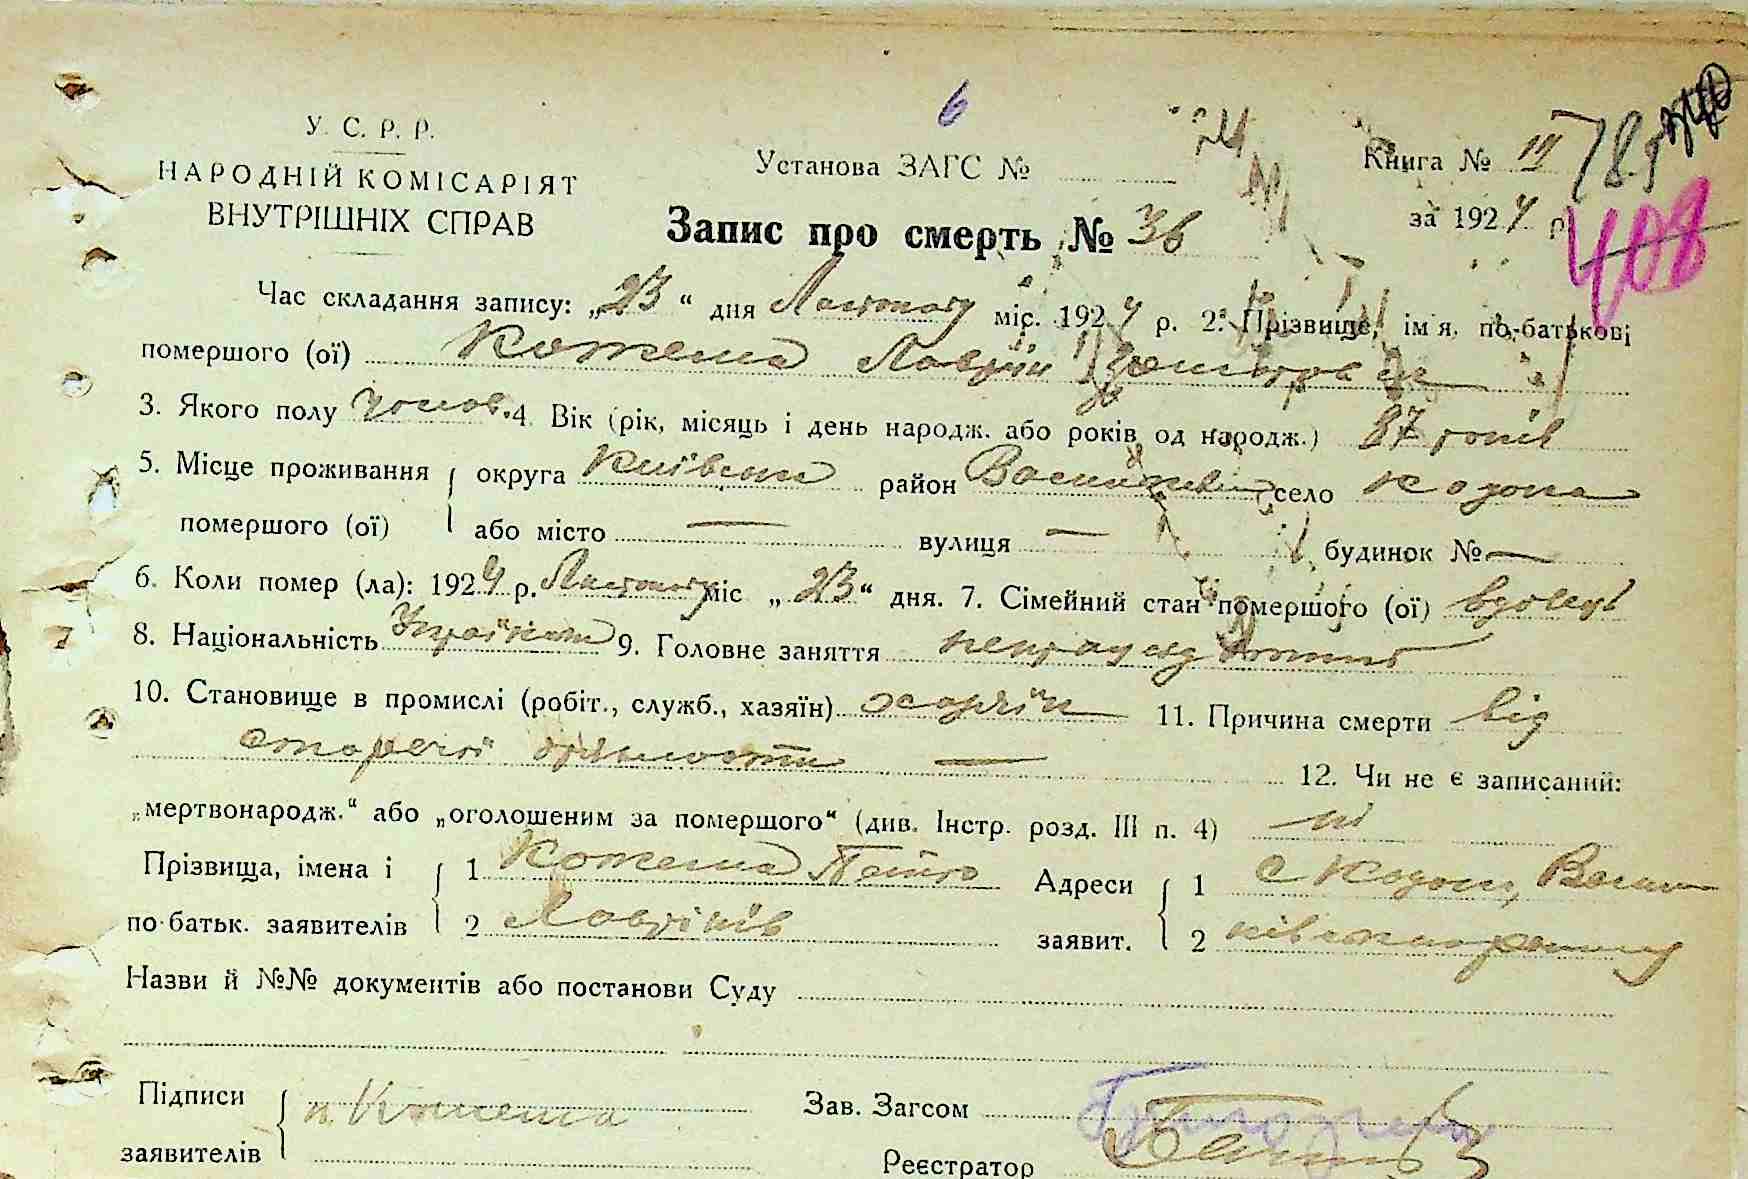 6
У. С. Р. Р.
НАРОДНІЙ КОМІСАРІЯТ
ВНУТРІШНІХ СПРАВ
Установа ЗАГС №
Книга № III
за 1924 р.
408
Запис про смерть № 36
Час складання запису: „23“ дня Лютого міс. 1924 р. 2. Прізвище, ім'я, по-батькові
помершого (ої) Кожема Лаврін
3. Якого полу чолов. 4. Вік (рік, місяць і день народж. або років од народж.) 87 років
5. Місце проживання округа Київська район Васильків село Кодака
помершого (ої) або місто — вулиця — будинок № —
6. Коли помер (ла): 1924 р. Лютого міс „23“ дня. 7. Сімейний стан помершого (ої) вдовець
8. Національність Українець 9. Головне заняття
10. Становище в промислі (робіт., служб., хазяїн) 11. Причина смерти від
старечої дряхлости — 12. Чи не є записаний:
„мертвонародж.“ або „оголошеним за помершого“ (див. Інстр. розд. III п. 4) ні
Прізвища, імена і 1 Кожема Петро Адреси 1 с
по-батьк. заявителів 2 Лаврінів заявит. 2
Назви й №№ документів або постанови Суду
Підписи п. Кожема Зав. Загсом
заявителів Реєстратор